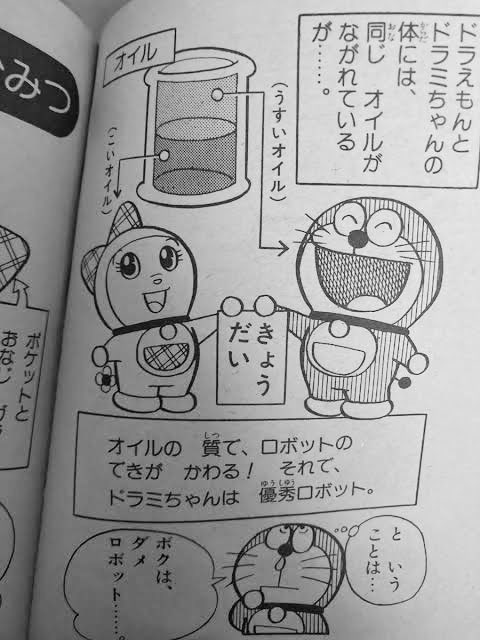 ドラえもんと
ドラミちゃんの
体には、
同じ オイルが
ながれている
が……。
オイル
(うすいオイル)
(こいオイル)
きょう
だい
オイルの 質で、ロボットの
できが かわる! それで、
ドラミちゃんは 優秀ロボット。
と いう
ことは…
ボクは、
ダメ
ロボット……。
みつ
ポケットと
おなじ